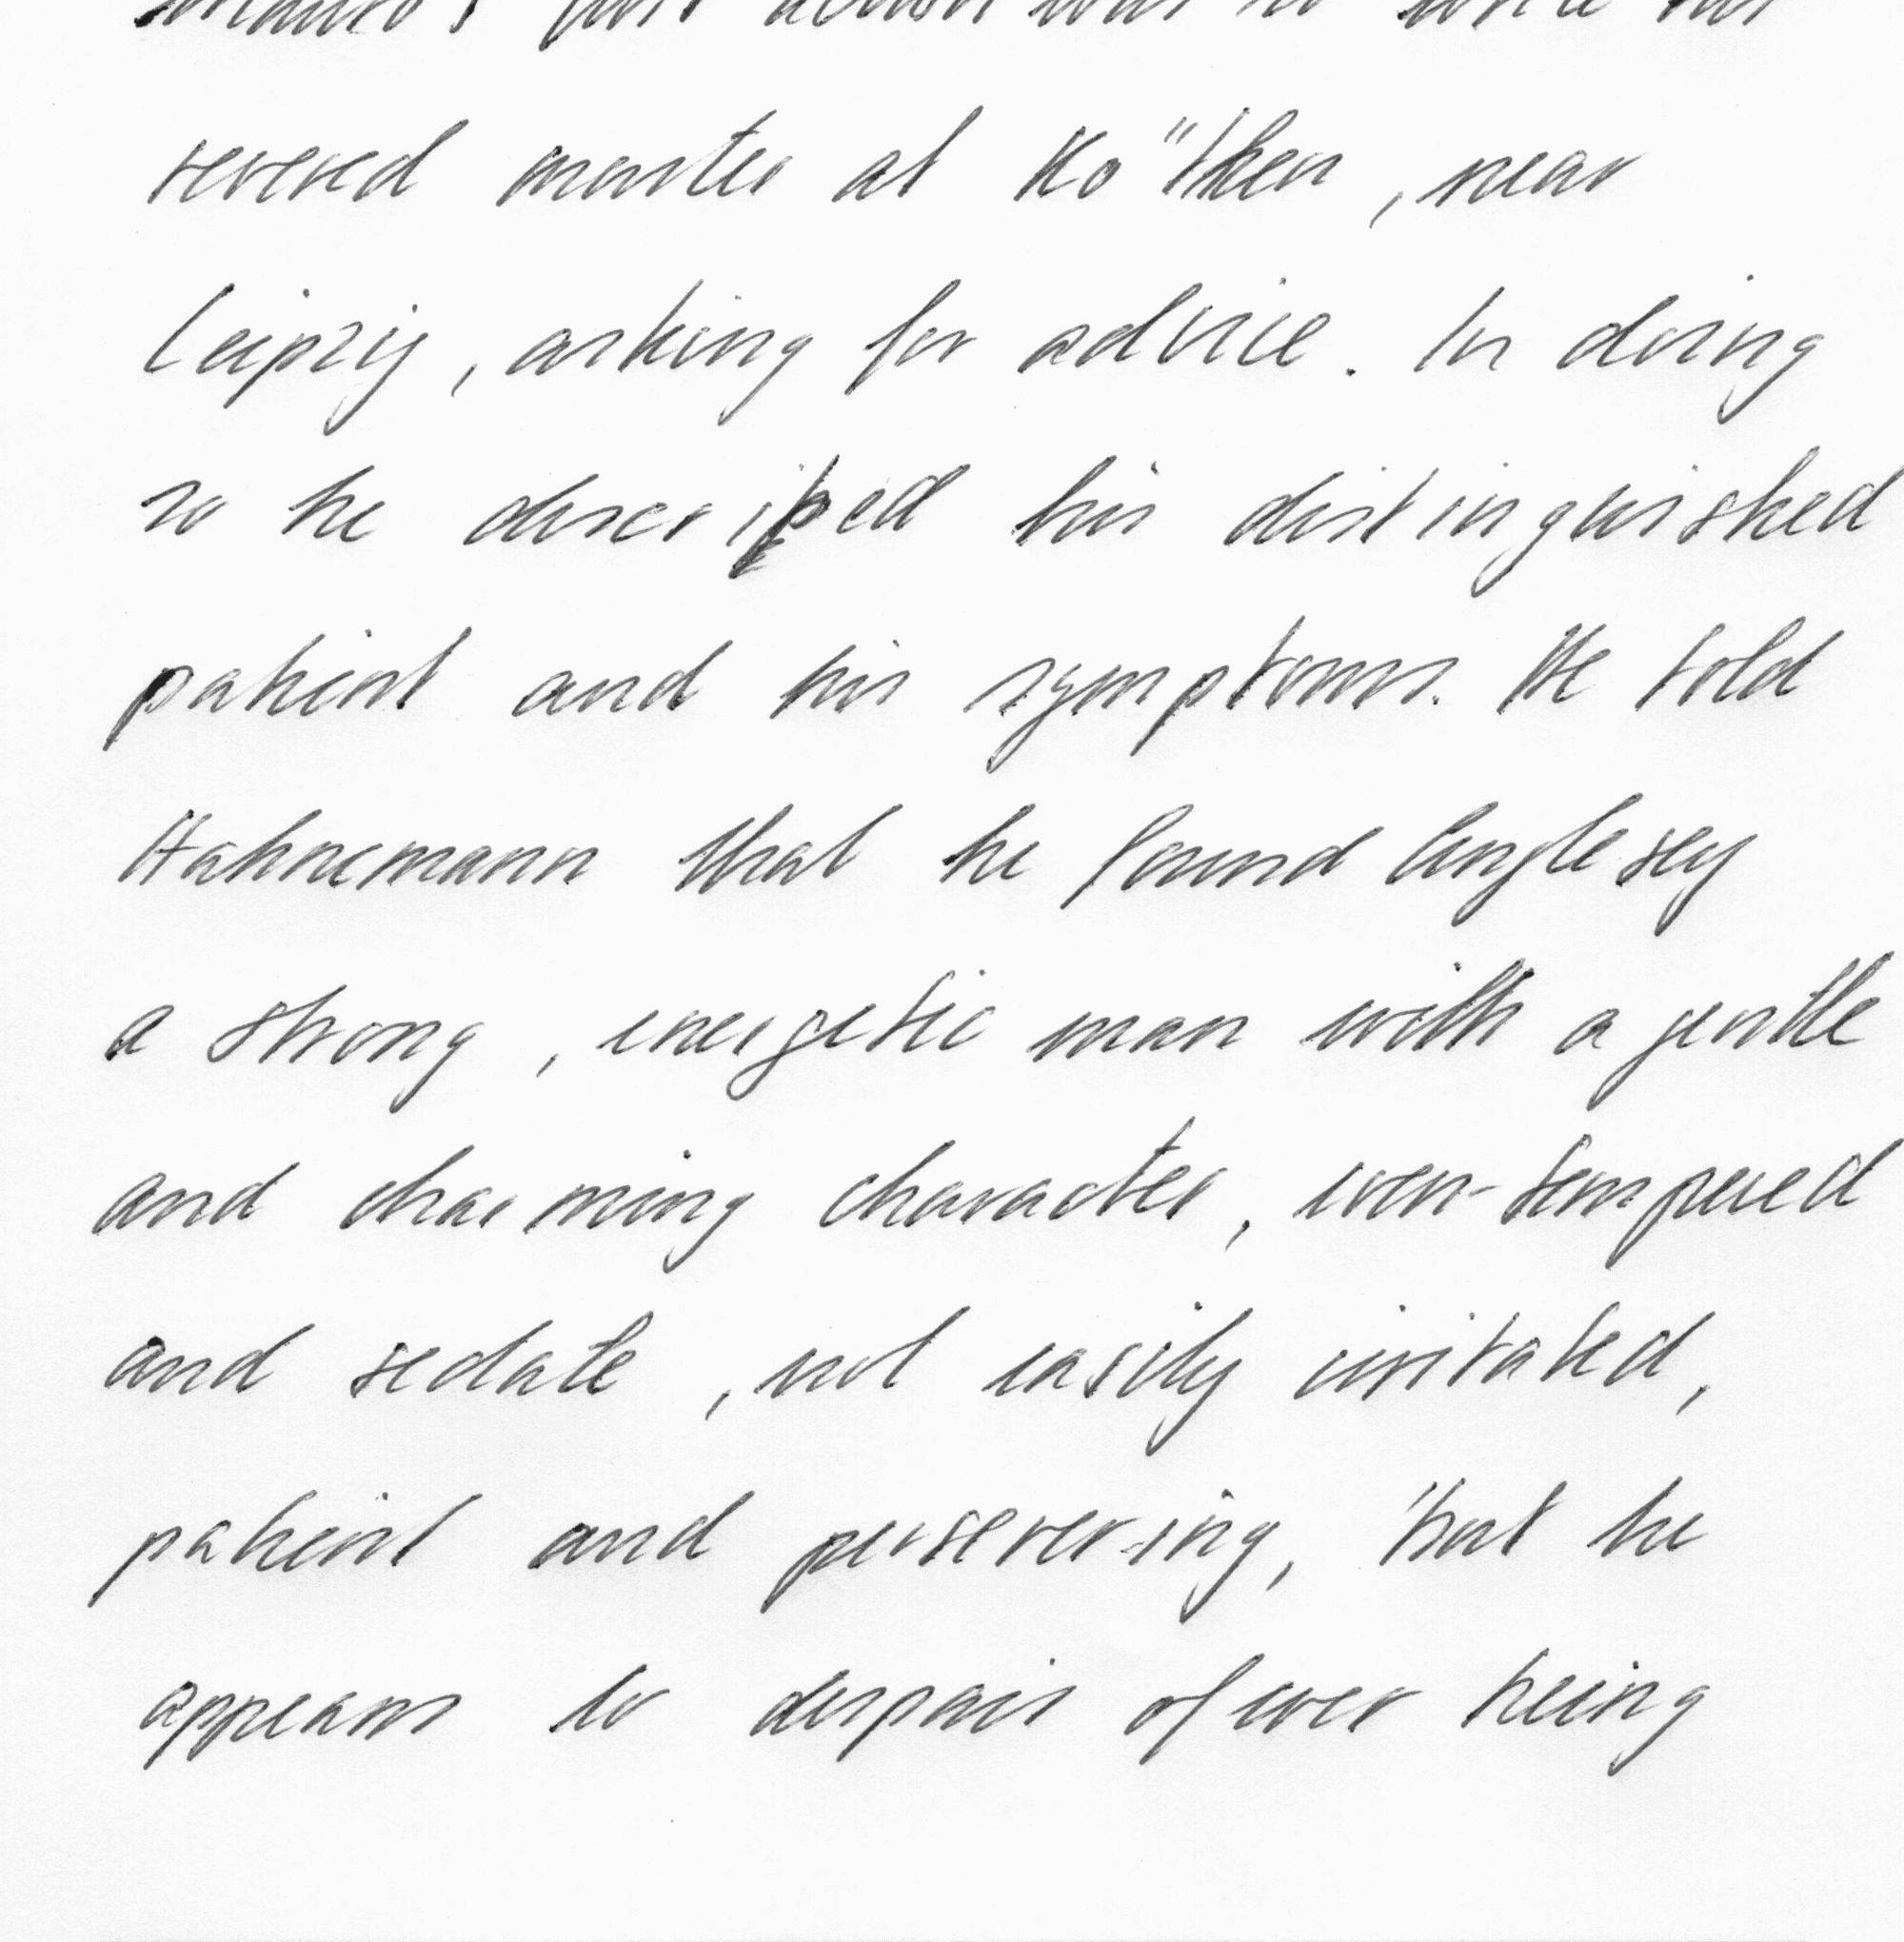 first action was to write his
revered master at Ko"then, near
Leipzig, asking for advice. In doing
so he described his distinguished
patient and his symptoms. He told
Hahnemann that he found Anglesey
a strong, energetic man with a gentle
and charming character, even-tempered
and sedate, not easily irritated,
patient and persevering, 'but he
appears to despair of ever being